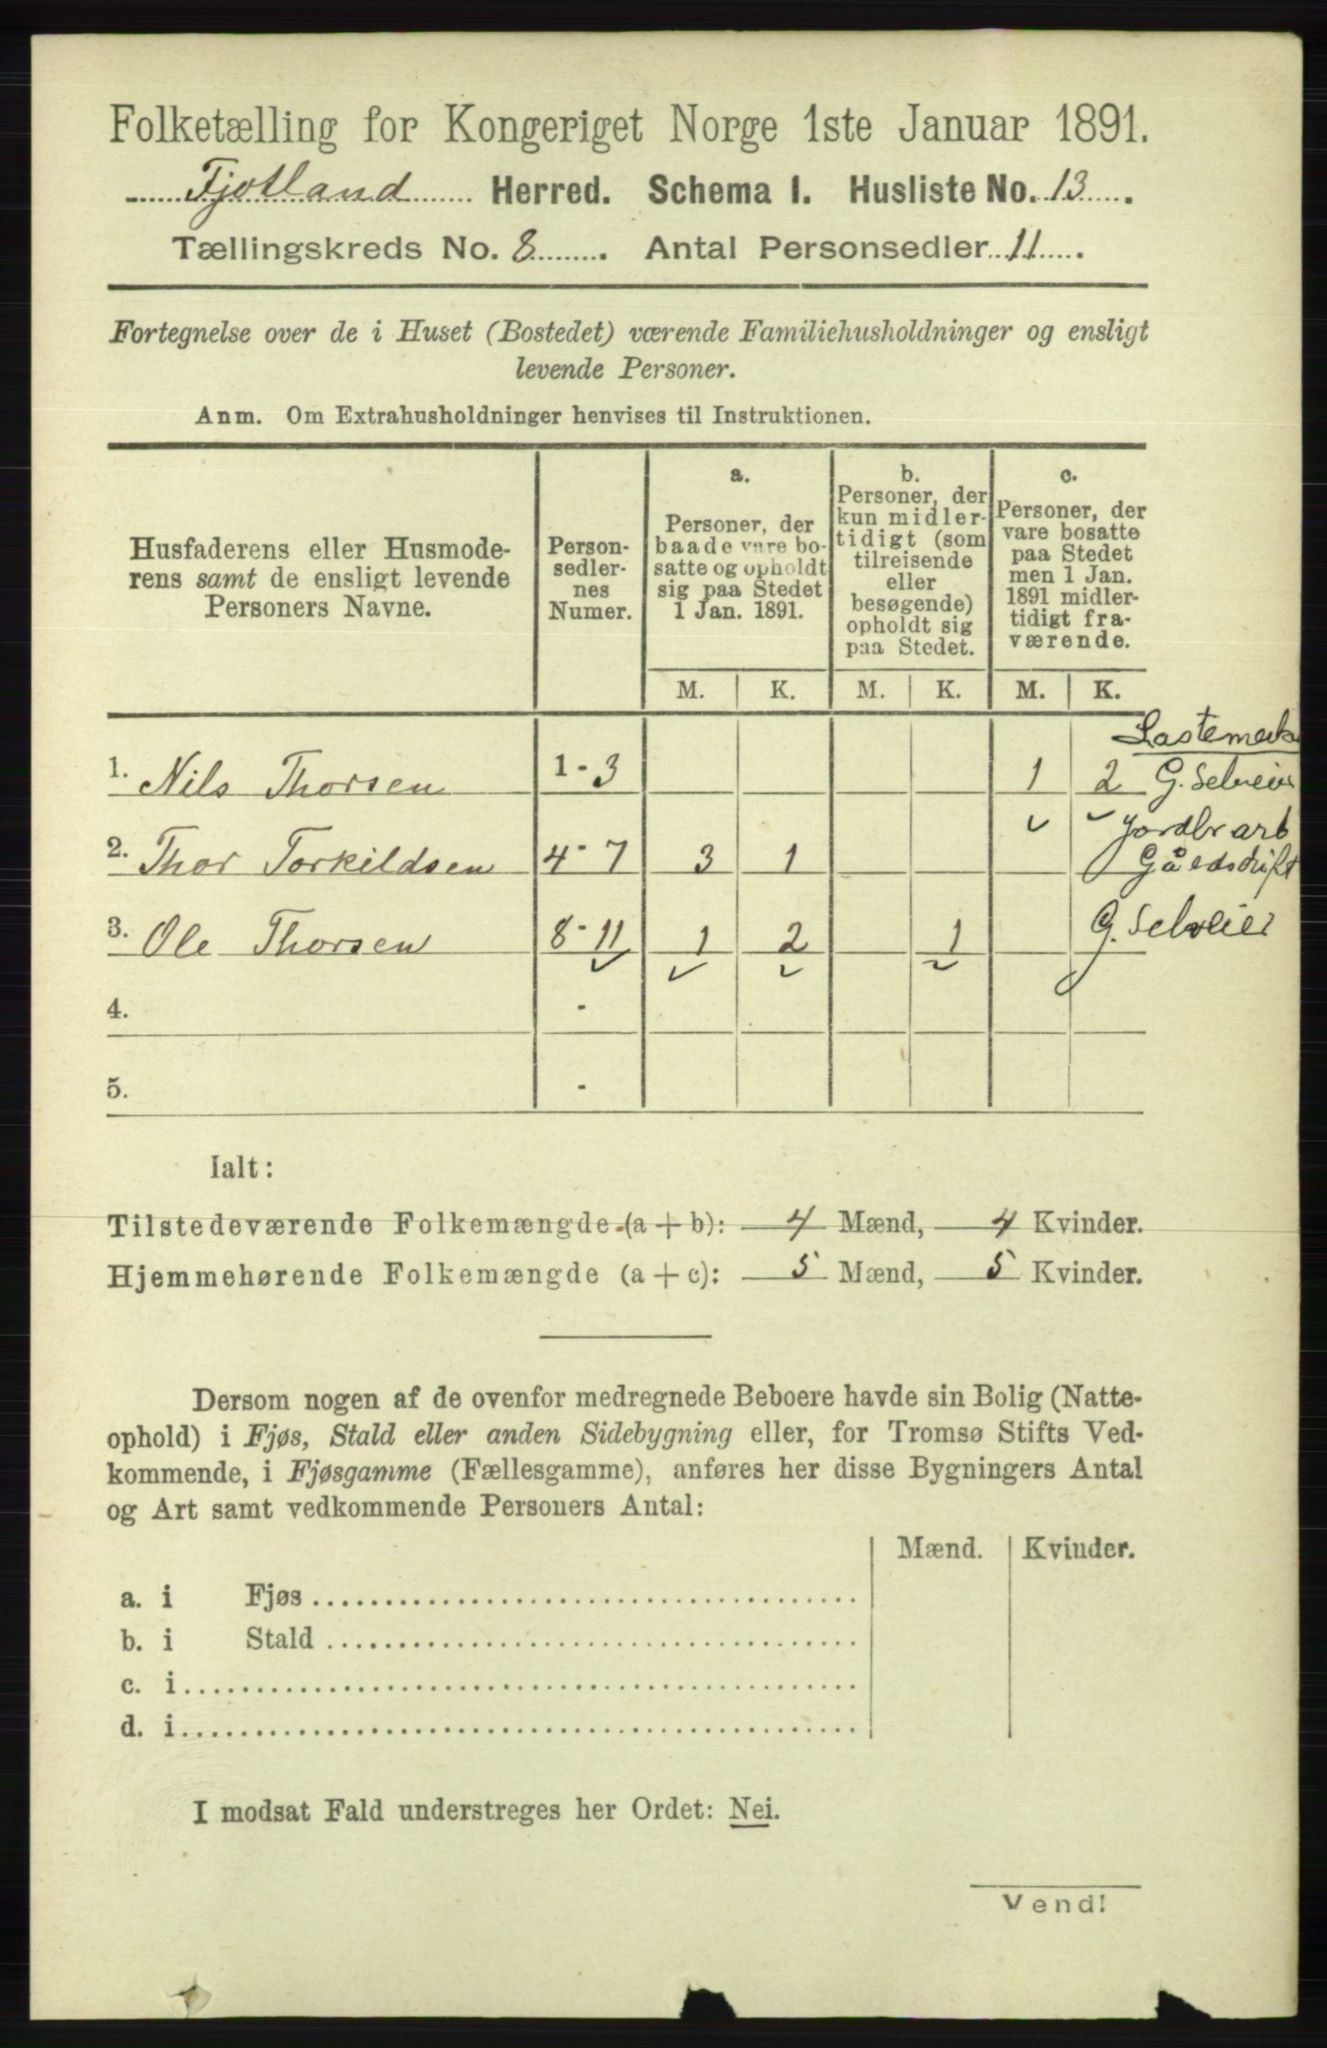 Folketælling for Kongeriget Norge 1ste Januar 1891.
Fjotland Herred. Schema I. Husliste No. 13.
Tællingskreds No. 8. Antal Personsedler 11.
Fortegnelse over de i Huset (Bostedet) værende Familiehusholdninger og ensligt
levende Personer.
Anm. Om Extrahusholdninger henvises til Instruktionen.
Husfaderens eller Husmode-
rens samt de ensligt levende
Personers Navne.
Person-
sedler-
nes
Numer.
a.
Personer, der
baade vare bo-
satte og opholdt
sig paa Stedet
1 Jan. 1891.
b.
Personer, der
kun midler-
tidigt (som
tilreisende
eller
besøgende)
opholdt sig
paa Stedet.
c.
Personer, der
vare bosatte
paa Stedet
men 1 Jan.
1891 midler-
tidigt fra-
værende.
M. K. M. K. M. K.
1. Nils Thorsen 1-3 1 2 G. Selveier
Jordbr arb
2. Thor Torkildsen 4-7 3 1 Gårdsdrift
3. Ole Thorsen 8-11 1 2 1 G. Selveier
4. -
5. -
Ialt:
Tilstedeværende Folkemængde (a+b): 4 Mænd, 4 Kvinder.
Hjemmehørende Folkemængde (a+c): 5 Mænd, 5 Kvinder.
Dersom nogen af de ovenfor medregnede Beboere havde sin Bolig (Natte-
ophold) i Fjøs, Stald eller anden Sidebygning eller, for Tromsø Stifts Ved-
kommende, i Fjøsgamme (Fællesgamme), anføres her disse Bygningers Antal
og Art samt vedkommende Personers Antal:
Mænd. Kvinder.
a. i Fjøs
b. i Stald
c. i
d. i
I modsat Fald understreges her Ordet: Nei.
Vend!